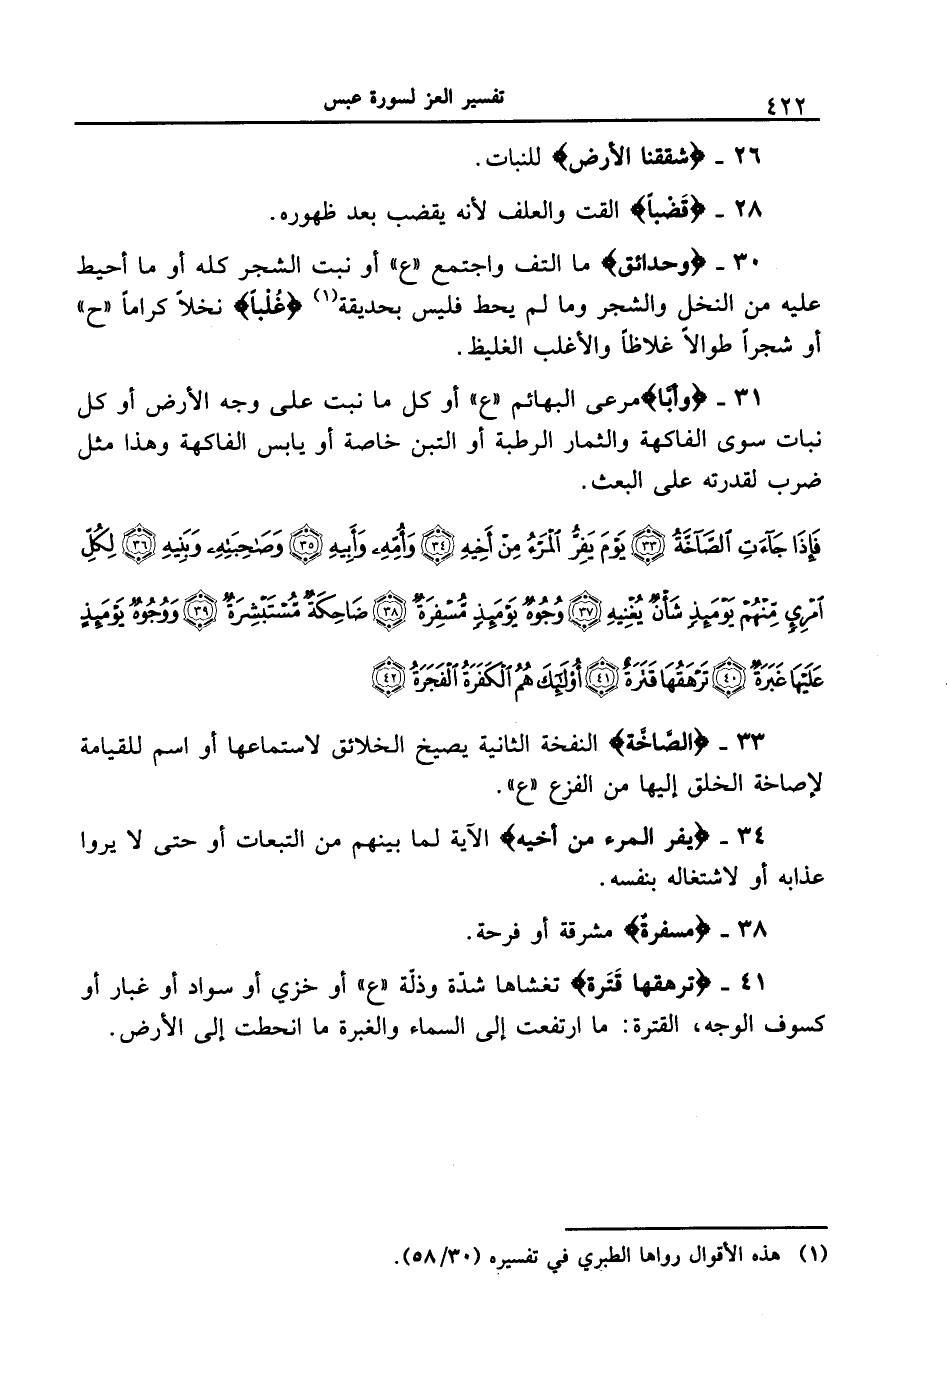 ٤٢٢ تفسير العز لسورة عبس
٢٦ ـ ﴿شققنا الأرض﴾ للنبات.
٢٨ ـ ﴿قَضْباً﴾ القت والعلف لأنه يقضب بعد ظهوره.
٣٠ ـ ﴿وحدائق﴾ ما التف واجتمع «ع» أو نبت الشجر كله أو ما أحيط
عليه من النخل والشجر وما لم يحط فليس بحديقة(١) ﴿غُلْباً﴾ نخلاً كراماً «ح»
أو شجراً طوالاً غلاظاً والأغلب الغليظ.
٣١ ـ ﴿وأبًّا﴾مرعى البهائم «ع» أو كل ما نبت على وجه الأرض أو كل
نبات سوى الفاكهة والثمار الرطبة أو التبن خاصة أو يابس الفاكهة وهذا مثل
ضرب لقدرته على البعث.
فَإِذَا جَآءَتِ ٱلصَّآخَّةُ ﴿٣٣﴾ يَوْمَ يَفِرُّ ٱلْمَرْءُ مِنْ أَخِيهِ ﴿٣٤﴾ وَأُمِّهِۦ وَأَبِيهِ ﴿٣٥﴾ وَصَٰحِبَتِهِۦ وَبَنِيهِ ﴿٣٦﴾ لِكُلِّ
ٱمْرِئٍ مِّنْهُمْ يَوْمَئِذٍ شَأْنٌ يُغْنِيهِ ﴿٣٧﴾ وُجُوهٌ يَوْمَئِذٍ مُّسْفِرَةٌ ﴿٣٨﴾ ضَاحِكَةٌ مُّسْتَبْشِرَةٌ ﴿٣٩﴾ وَوُجُوهٌ يَوْمَئِذٍ
عَلَيْهَا غَبَرَةٌ ﴿٤٠﴾ تَرْهَقُهَا قَتَرَةٌ ﴿٤١﴾ أُوْلَٰٓئِكَ هُمُ ٱلْكَفَرَةُ ٱلْفَجَرَةُ ﴿٤٢﴾
٣٣ ـ ﴿الصَّاخَّة﴾ النفخة الثانية يصيخ الخلائق لاستماعها أو اسم للقيامة
لإصاخة الخلق إليها من الفزع «ع».
٣٤ ـ ﴿يفر المرء من أخيه﴾ الآية لما بينهم من التبعات أو حتى لا يروا
عذابه أو لاشتغاله بنفسه.
٣٨ ـ ﴿مسفرةٌ﴾ مشرقة أو فرحة.
٤١ ـ ﴿ترهقها قَتَرة﴾ تغشاها شدّة وذلّة «ع» أو خزي أو سواد أو غبار أو
كسوف الوجه، القترة: ما ارتفعت إلى السماء والغبرة ما انحطت إلى الأرض.
(١) هذه الأقوال رواها الطبري في تفسيره (٥٨/٣٠).